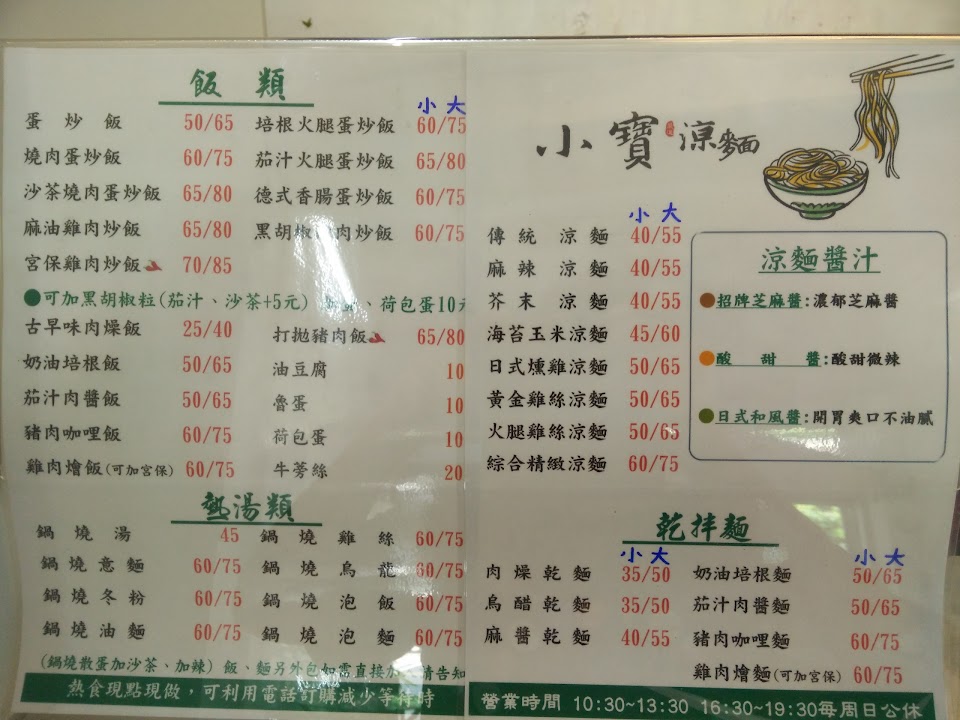 飯類
小 大
蛋炒飯 50/65 培根火腿蛋炒飯 60/75
燒肉蛋炒飯 60/75 茄汁火腿蛋炒飯 65/80
沙茶燒肉蛋炒飯 65/80 德式香腸蛋炒飯 60/75
麻油雞肉炒飯 65/80 黑胡椒 肉炒飯 60/75
宮保雞肉炒飯 70/85
●可加黑胡椒粒(茄汁、沙茶+5元) 、荷包蛋10元
古早味肉燥飯 25/40 打拋豬肉飯 65/80
奶油培根飯 50/65 油豆腐 10
茄汁肉醬飯 50/65 魯蛋 10
豬肉咖哩飯 60/75 荷包蛋 10
雞肉燴飯(可加宮保) 60/75 牛蒡絲 20
熱湯類
鍋燒湯 45 鍋燒雞絲 60/75
鍋燒意麵 60/75 鍋燒烏龍 60/75
鍋燒冬粉 60/75 鍋燒泡飯 60/75
鍋燒油麵 60/75 鍋燒泡麵 60/75
(鍋燒散蛋加沙茶、加辣) 飯、麵另外包如需直接加 請告知
熱食現點現做，可利用電話訂購減少等待時
小寶涼麵
小 大
傳統涼麵 40/55
麻辣涼麵 40/55
芥末涼麵 40/55
海苔玉米涼麵 45/60
日式燻雞涼麵 50/65
黃金雞絲涼麵 50/65
火腿雞絲涼麵 50/65
綜合精緻涼麵 60/75
涼麵醬汁
●招牌芝麻醬:濃郁芝麻醬
●酸甜醬:酸甜微辣
●日式和風醬:開胃爽口不油膩
乾拌麵
小 大 小 大
肉燥乾麵 35/50 奶油培根麵 50/65
烏醋乾麵 35/50 茄汁肉醬麵 50/65
麻醬乾麵 40/55 豬肉咖哩麵 60/75
雞肉燴麵(可加宮保) 60/75
營業時間 10:30~13:30 16:30~19:30每周日公休